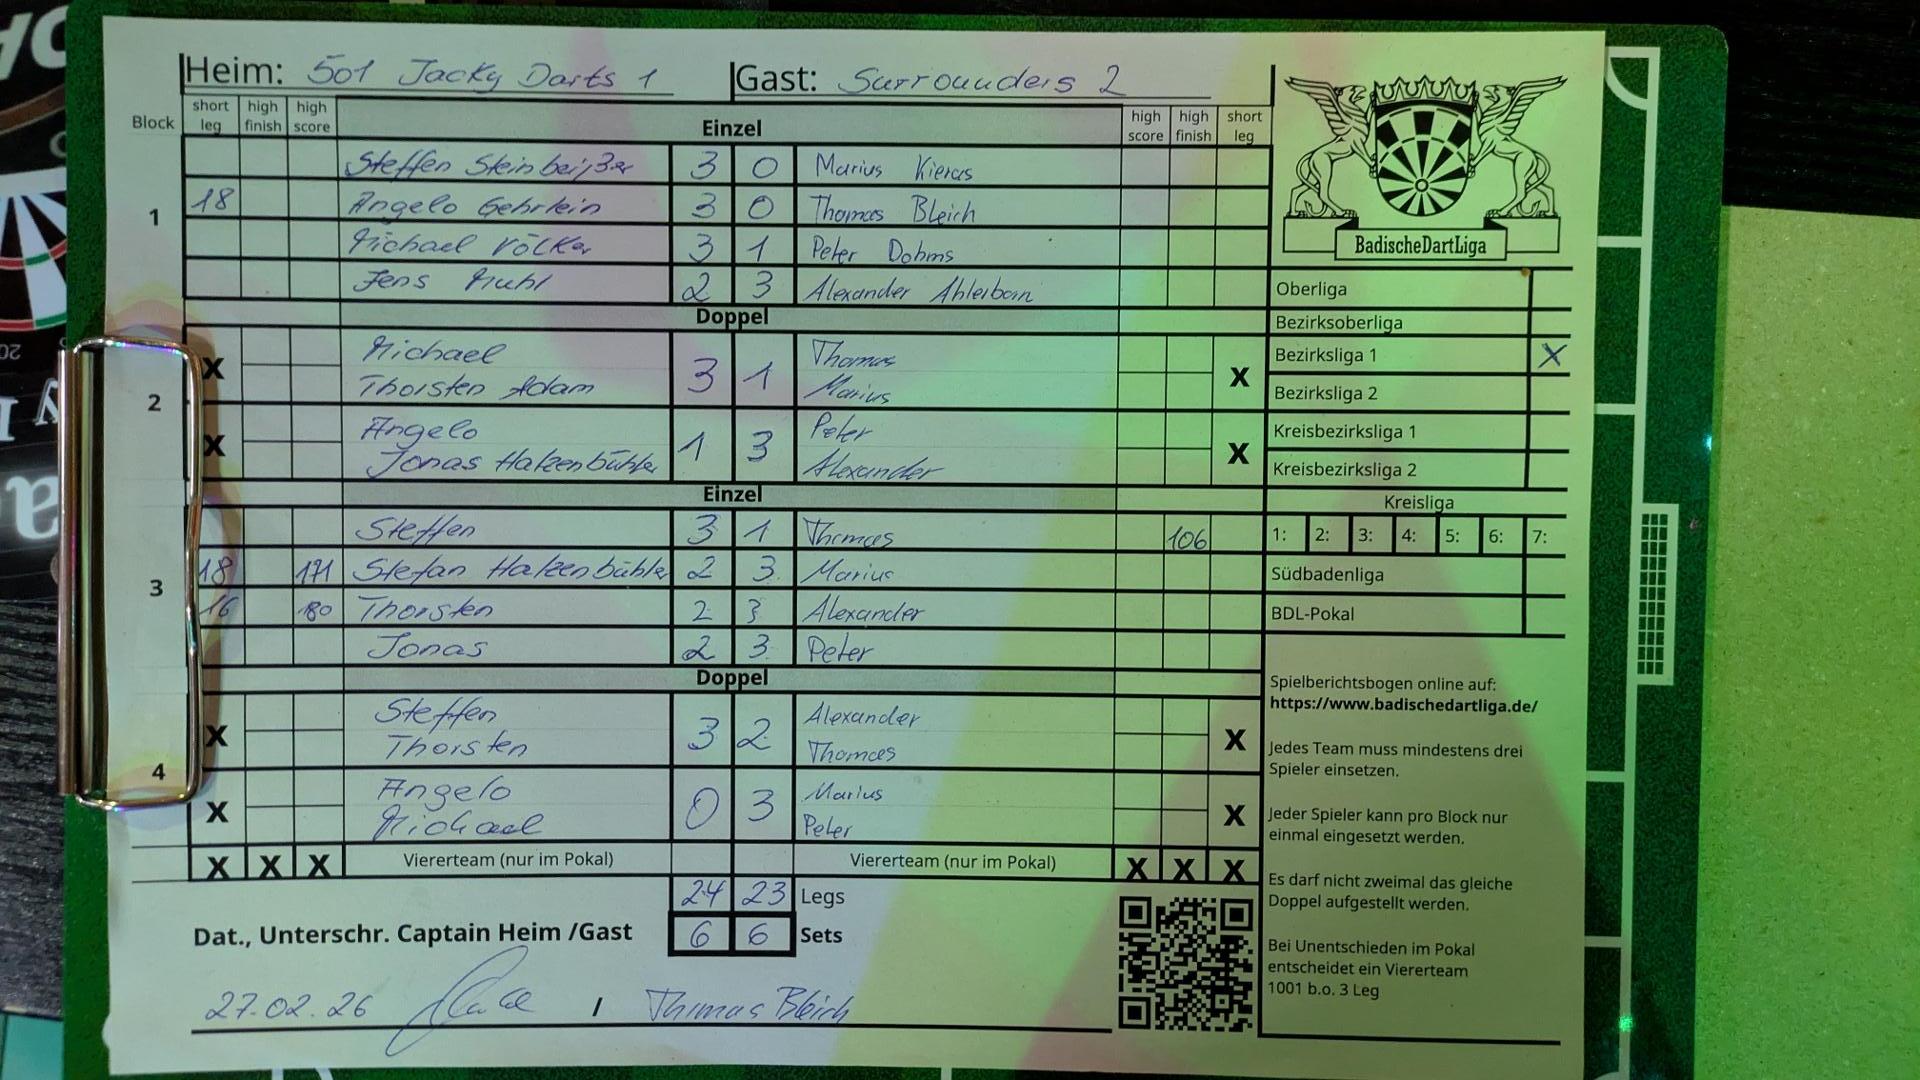 Heim: 501 Jacky Darts 1 Gast: Surrounders 2
Block short leg high finish high score Einzel high score high finish short leg
1
Steffen Steinbeißer 3 0 Marius Kieras
18 Angelo Gehrlein 3 0 Thomas Bleich
Michael Völker 3 1 Peter Dohms
Jens 2 3 Alexander Ahlerborn
Doppel
2
X Michael Thorsten Adam 3 1 Thomas Marius X
X Angelo Jonas Hatzenbühler 1 3 Peter Alexander X
Einzel
3
Steffen 3 1 Thomas 106
18 171 Stefan Hatzenbühler 2 3 Marius
16 180 Thorsten 2 3 Alexander
Jonas 2 3 Peter
Doppel
4
X Steffen Thorsten 3 2 Alexander Thomas X
X Angelo Michael 0 3 Marius Peter X
X X X Viererteam (nur im Pokal) Viererteam (nur im Pokal) X X X
24 23 Legs
Dat., Unterschr. Captain Heim /Gast 6 6 Sets
27.02.26 / Thomas Bleich
BadischeDartLiga
Oberliga
Bezirksoberliga
Bezirksliga 1 X
Bezirksliga 2
Kreisbezirksliga 1
Kreisbezirksliga 2
Kreisliga
1: 2: 3: 4: 5: 6: 7:
Südbadenliga
BDL-Pokal
Spielberichtsbogen online auf:
https://www.badischedartliga.de/
Jedes Team muss mindestens drei
Spieler einsetzen.
Jeder Spieler kann pro Block nur
einmal eingesetzt werden.
Es darf nicht zweimal das gleiche
Doppel aufgestellt werden.
Bei Unentschieden im Pokal
entscheidet ein Viererteam
1001 b.o. 3 Leg